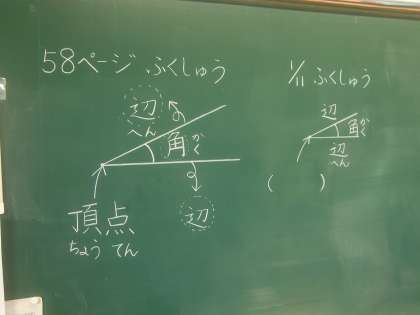 58ページ ふくしゅう
辺
へん
角 かく
辺
頂点
ちょう てん
1/11 ふくしゅう
辺
角 かく
辺
へん
(    )